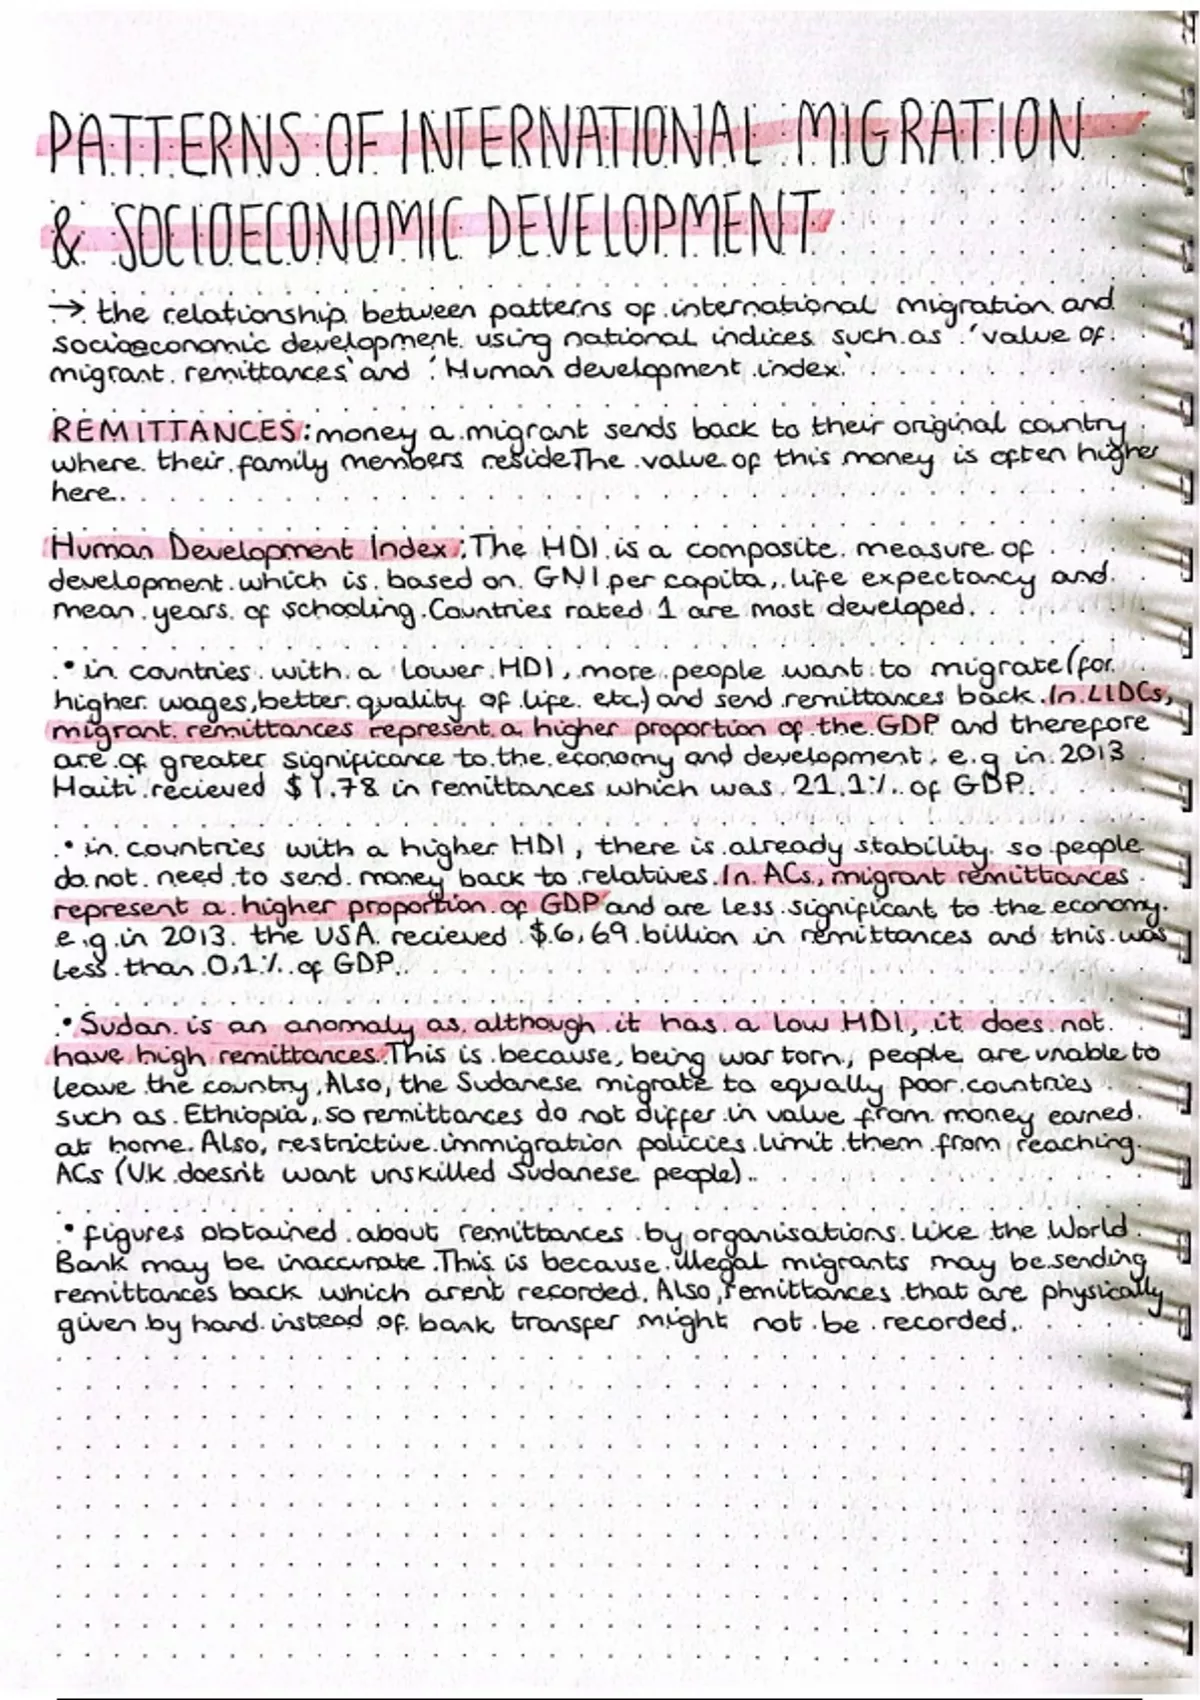 PATTERNS OF INTERNATIONAL MIGRATION
& SOCIOECONOMIC DEVELOPMENT
→ the relationship between patterns of international migration and
socioeconomic development using national indices such as 'value of
migrant remittances' and 'Human development index'
REMITTANCES: money a migrant sends back to their original country
where their family members reside The value of this money is often higher
here.
Human Development Index: The HDI is a composite measure of
development which is based on GNI per capita, life expectancy and
mean years of schooling. Countries rated 1 are most developed.
• in countries with a lower HDI, more people want to migrate (for
higher wages, better quality of life etc.) and send remittances back. In LIDCs,
migrant remittances represent a higher proportion of the GDP and therefore
are of greater significance to the economy and development, e.g in 2013
Haiti recieved $1.78 in remittances which was 21.1% of GDP.
• in countries with a higher HDI, there is already stability so people
do not need to send money back to relatives. In ACs, migrant remittances
represent a higher proportion of GDP and are less significant to the economy.
e.g in 2013 the USA recieved $6,69 billion in remittances and this was
less than 0,1% of GDP.
• Sudan is an anomaly as although it has a low HDI, it does not
have high remittances. This is because, being war torn, people are unable to
leave the country. Also, the Sudanese migrate to equally poor countries
such as Ethiopia, so remittances do not differ in value from money earned
at home. Also, restrictive immigration policies limit them from reaching
ACs (UK doesn't want unskilled Sudanese people).
• figures obtained about remittances by organisations like the World
Bank may be inaccurate. This is because illegal migrants may be sending
remittances back which aren't recorded. Also, remittances that are physically
given by hand instead of bank transfer might not be recorded.